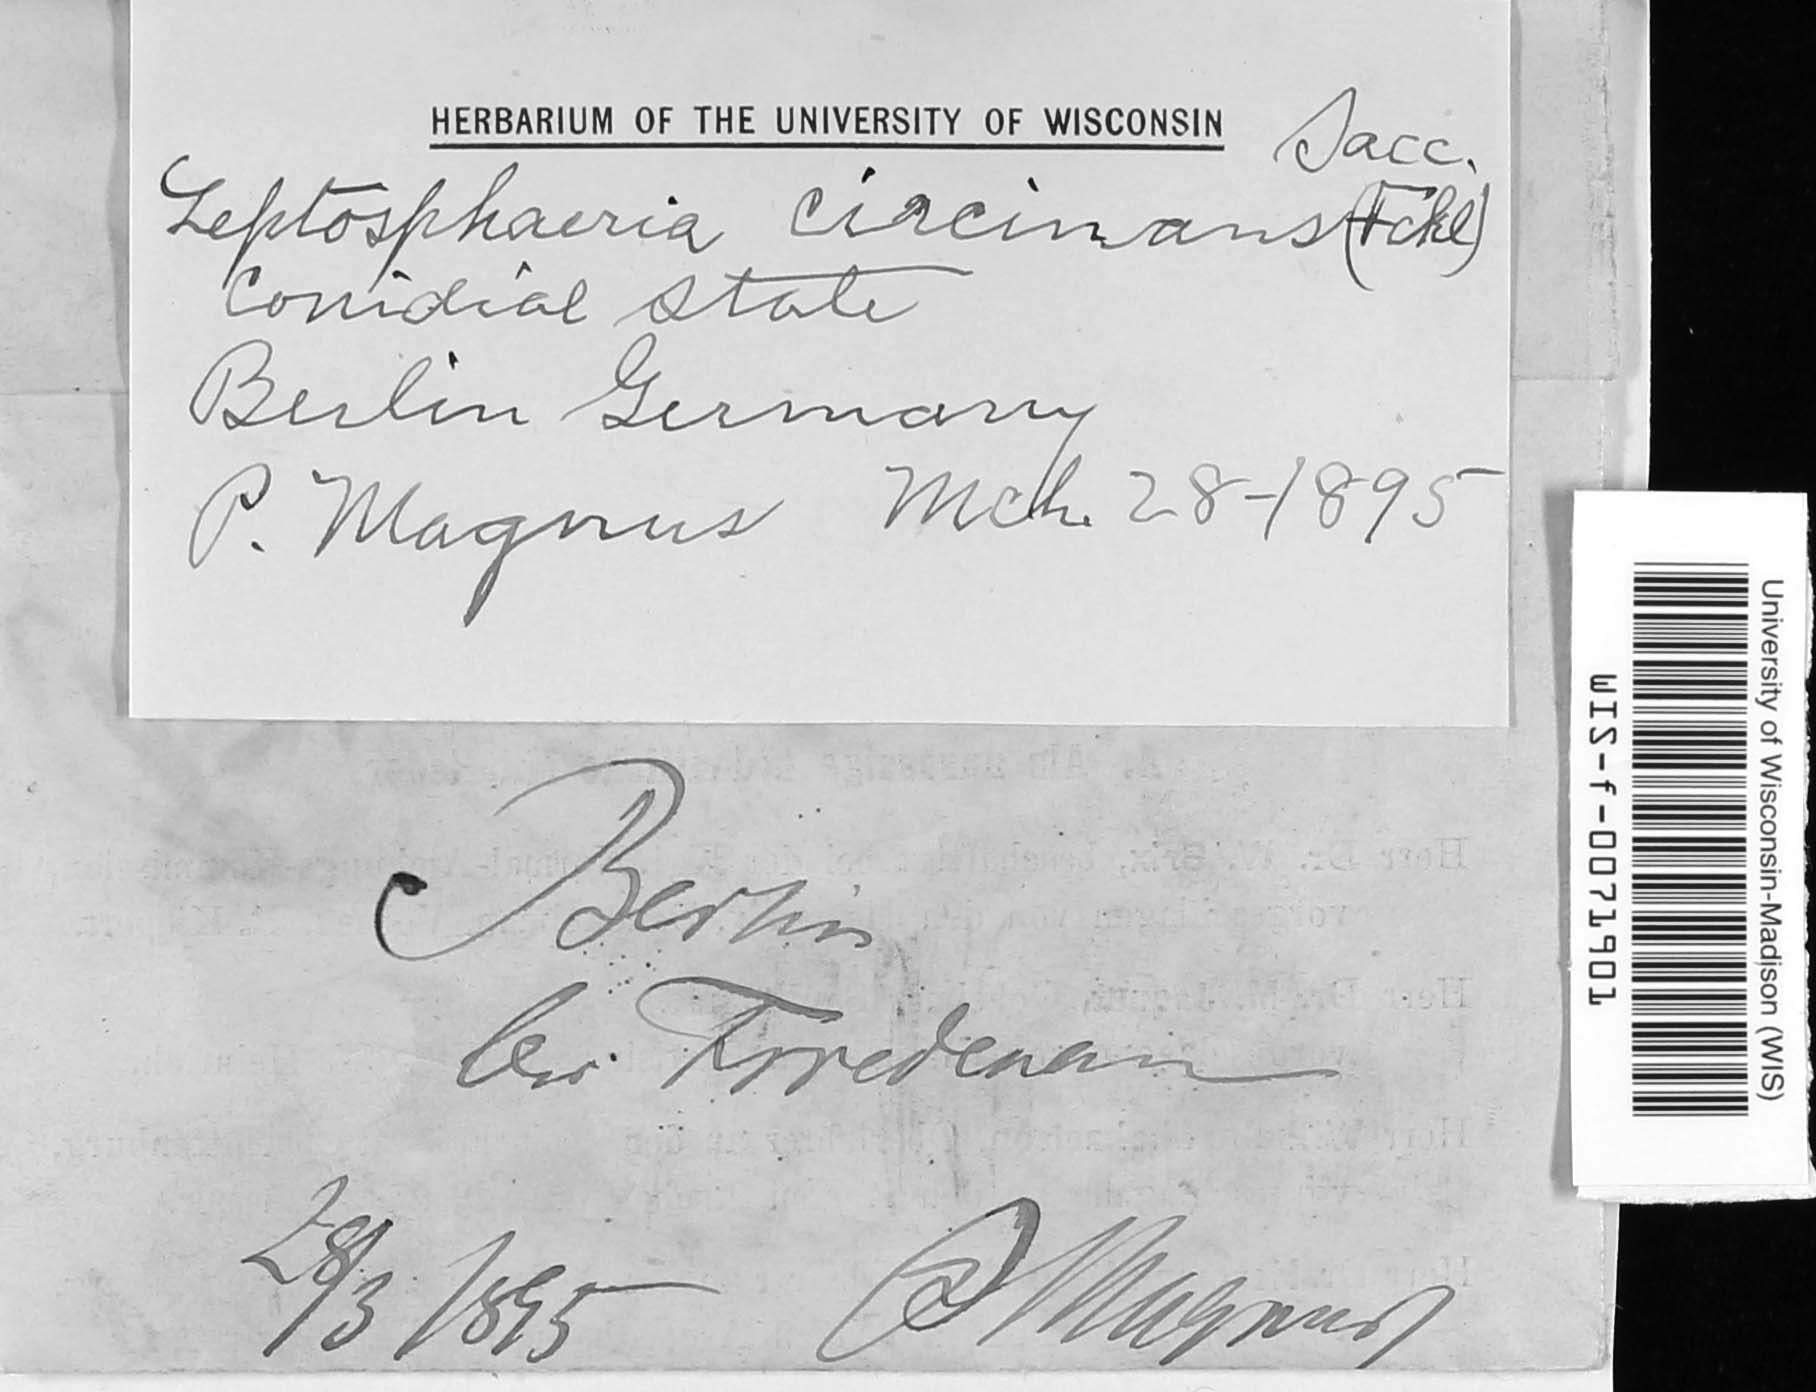 HERBARIUM OF THE UNIVERSITY OF WISCONSIN
Sacc.
Leptosphaeria circinans (Fckl)
Conidial state
Berlin Germany
P. Magnus Mch. 28-1895
Berlin
bei Friedenau
28/3 1895 P Magnus
University of Wisconsin-Madison (WIS)
WIS-f-0071901